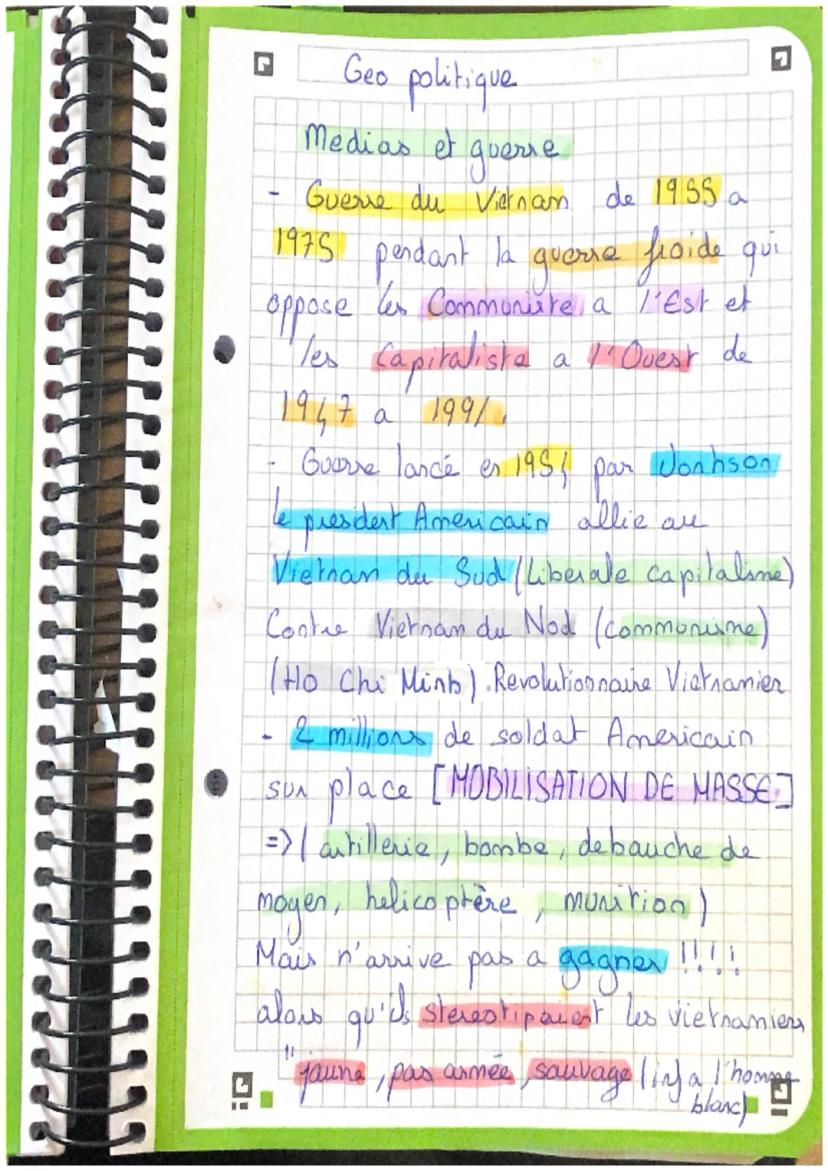 Geo politique
Medias et guerre
- Guerre du Vietnam de 1955 a
1975 pendant la guerre froide qui
oppose les Communiste a l'Est et
les Capitaliste a l'Ouest de
1947 a 1991.
- Guerre lancé en 1954 par Jonhson
le president Americain allie au
Vietnam du Sud (Liberale capitalisme)
Contre Vietnam du Nod (communisme)
(Ho Chi Minh). Revolutionnaire Vietnamien
- 2 millions de soldat Americain
sur place [MOBILISATION DE MASSE]
=> (artillerie, bombe, debauche de
moyen, helicoptère, munition)
Mais n'arrive pas a gagner !!!!
alors qu'ils stereotipaient les vietnamiens
"jaune, pas armée, sauvage (inf a l'homme
blanc)